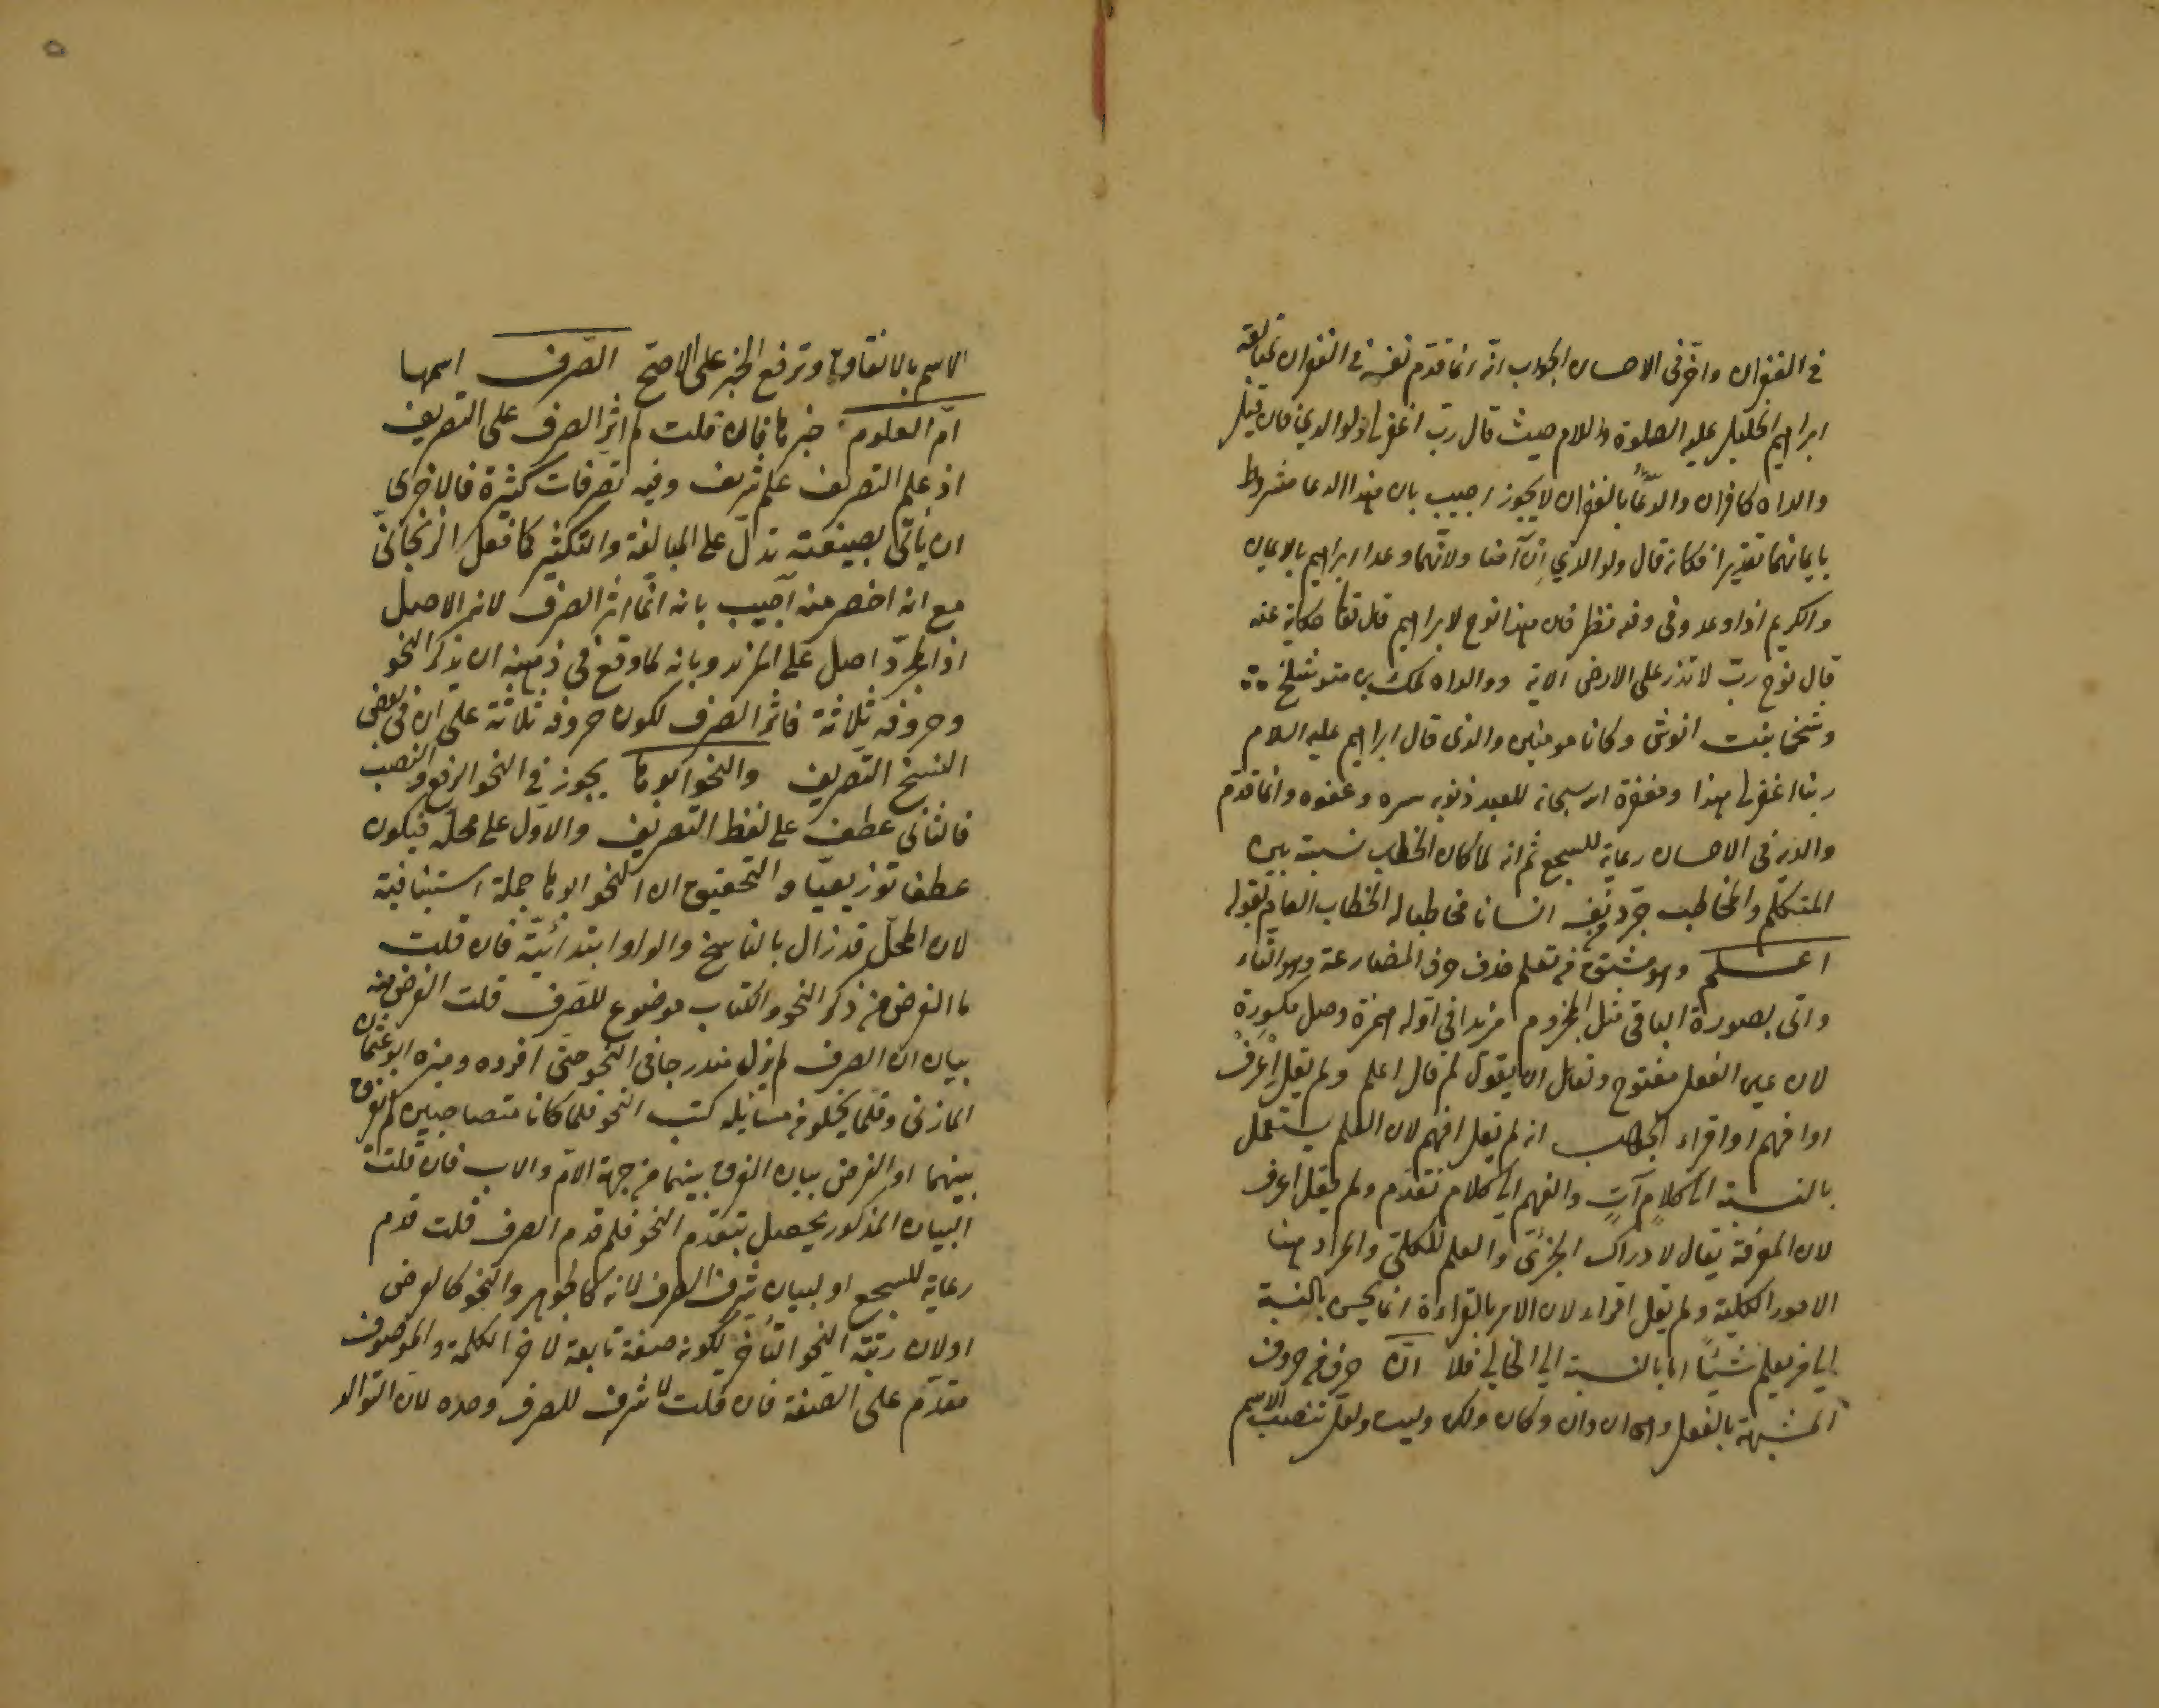 في الغفران واخر في الاحسان الجواب انه انما قدم نفسه في الغفران لمتابعة
ابراهيم الخليل عليه الصلوة والسلام حيث قال رب اغفر لي ولوالدي فان قيل
والداه كافران والدعاء بالغفران لا يجوز اجيب بان هذا الدعا مشروط
بايمانهما تقديرا فكانه قال ولوالدي ان آمنا ولانهما وعدا ابراهيم بالايمان
والكريم اذا وعد وفى وفيه نظر فان هذا نوح لا ابراهيم قال تعا حكاية عنه
قال نوح رب لا تذر على الارض الاية ووالداه لمك بن متوشلخ
وشمخا بنت انوش وكانا مومنين والذي قال ابراهيم عليه السلام
ربنا اغفر لي هذا ومغفرة الله سبحانه للعبد ذنوبه ستره وعفوه وانما قدم
والديه في الاحسان رعاية للسجع ثم انه لما كان الخطاب نسبة بين
المتكلم والمخاطب جرد من نفسه انسانا مخاطبا له الخطاب العام بقوله
اعلم وهو مشتق من تعلم حذف حرف المضارعة وهو التاء
واتى بصورة الباقي مثل المجزوم مزيدا في اوله همزة وصل مكسورة
لان عين الفعل مفتوح وقائل ان يقول لم قال اعلم ولم يقل اعرف
او افهم او اقراء الجواب انه لم يقل افهم لان العلم يستعمل
بالنسبة الى كلام آت والفهم الى كلام تقدم ولم يقل اعرف
لان المعرفة يقال لادراك الجزئي والعلم للكلي والمراد هنا
الامور الكلية ولم يقل اقراء لان الامر بالقراءة انما يحسن بالنسبة
الى من يعلم شيئا اما بالنسبة الى الخالي فلا ان حرف من حروف
المشبهة بالفعل وهي ان وان وكان ولكن وليت ولعل تنصب الاسم
الاسم بالاتفاق وترفع الخبر على الاصح الصرف اسمها
ام العلوم خبرها فان قلت لم اثر الصرف على التصريف
اذ علم التصريف علم شريف وفيه تصرفات كثيرة فالاحرى
ان ياتي بصيغة تدل على المبالغة والتكثير كما فعل الزنجاني
مع انه اخصر منه اجيب بانه انما اثر الصرف لانه الاصل
اذ المجرد اصل على المزيد وبانه لما وقع في ذهنه ان يذكر النحو
وحروفه ثلاثة فاثر الصرف لكون حروفه ثلاثة على ان في بعض
النسخ التصريف والنحو ابوها يجوز في النحو الرفع والنصب
فالثاني عطف على لفظ التصريف والاول على محله فيكون
عطفا توزيعيا والتحقيق ان النحو ابوها جملة استينافية
لان المحل قد زال بالناسخ والواو ابتدائية فان قلت
ما الغرض من ذكر النحو والكتاب موضوع للصرف قلت الغرض منه
بيان ان الصرف لم يزل مندرجا في النحو حتى افرده وميزه ابو عثمان
المازني وقلما يخلو من مسائله كتب النحو فلما كانا متصاحبين لم يفرق
بينهما او الغرض بيان الفرق بينهما من جهة الام والاب فان قلت
البيان المذكور يحصل بتقدم النحو فلم قدم الصرف قلت قدم
رعاية للسجع او لبيان شرف الصرف لانه كالجوهر والنحو كالعرض
او لان رتبة النحو التاخر لكونه صفة تابعة لاخر الكلمة والموصوف
مقدم على الصفة فان قلت لا شرف للصرف وحده لان التوالد